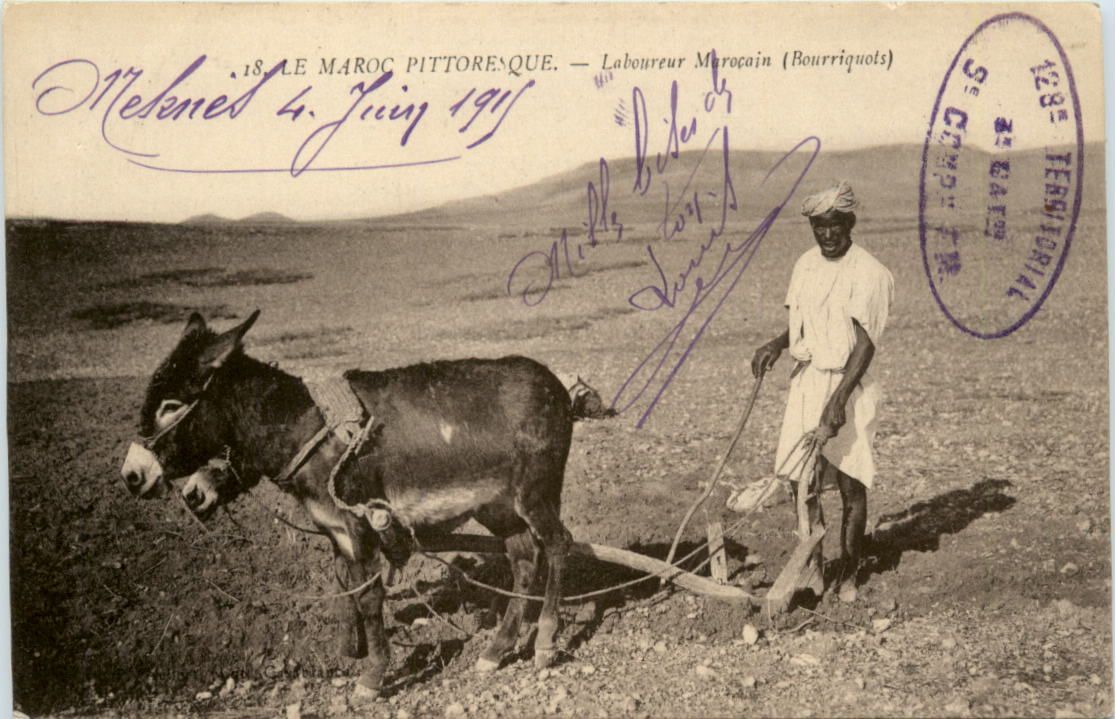 18. LE MAROC PITTORESQUE. — Laboureur Marocain (Bourriquots)
Meknès 4 Juin 1915
Mille bises de
Louis
128E TERRITORIAL
3E BATON
Casablanca